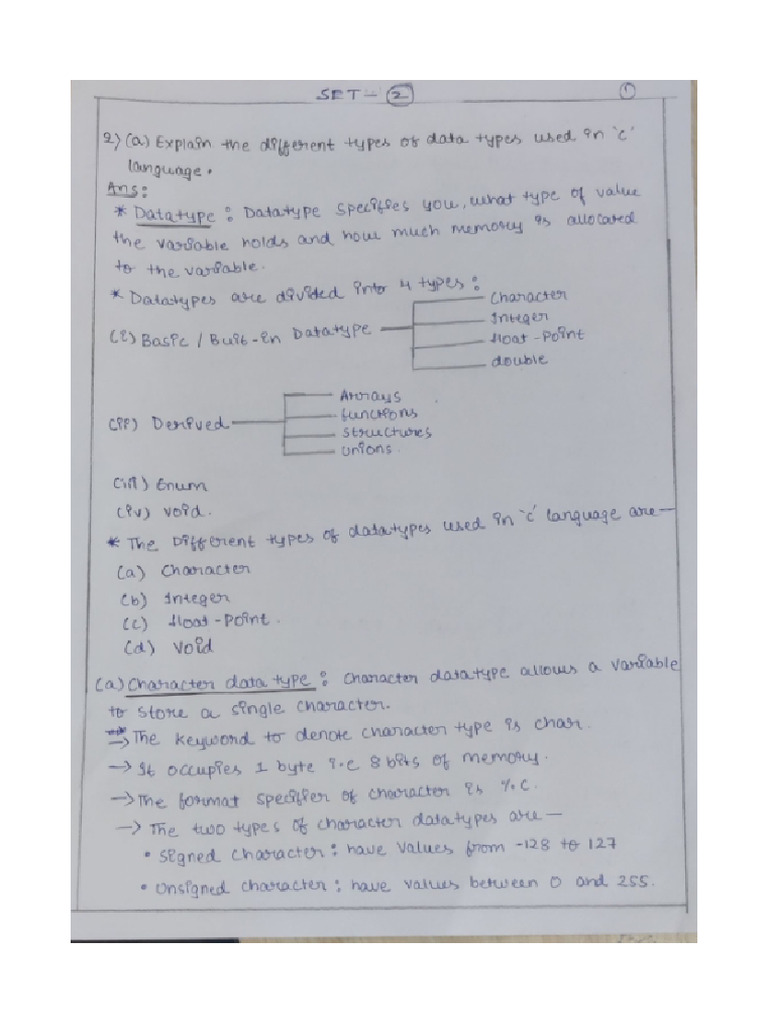 SET - 2
1
2) (a) Explain the different types of data types used in 'c'
language.
Ans:
* Datatype : Datatype specifies you, what type of value
the variable holds and how much memory is allocated
to the variable.
* Datatypes are divided into 4 types :
(i) Basic / Buit-in Datatype
Character
Integer
float-point
double
(ii) Derived
Arrays
functions
structures
unions.
(iii) Enum
(iv) void.
* The Different types of datatypes used in 'c' language are—
(a) Character
(b) Integer
(c) float-point.
(d) void
(a) Character data type : Character datatype allows a variable
to store a single character.
→ The keyword to denote character type is char.
→ It occupies 1 byte i.e 8 bits of memory.
→ The format specifier of character is %c.
→ The two types of character datatypes are—
• signed character : have values from -128 to 127
• unsigned character : have values between 0 and 255.